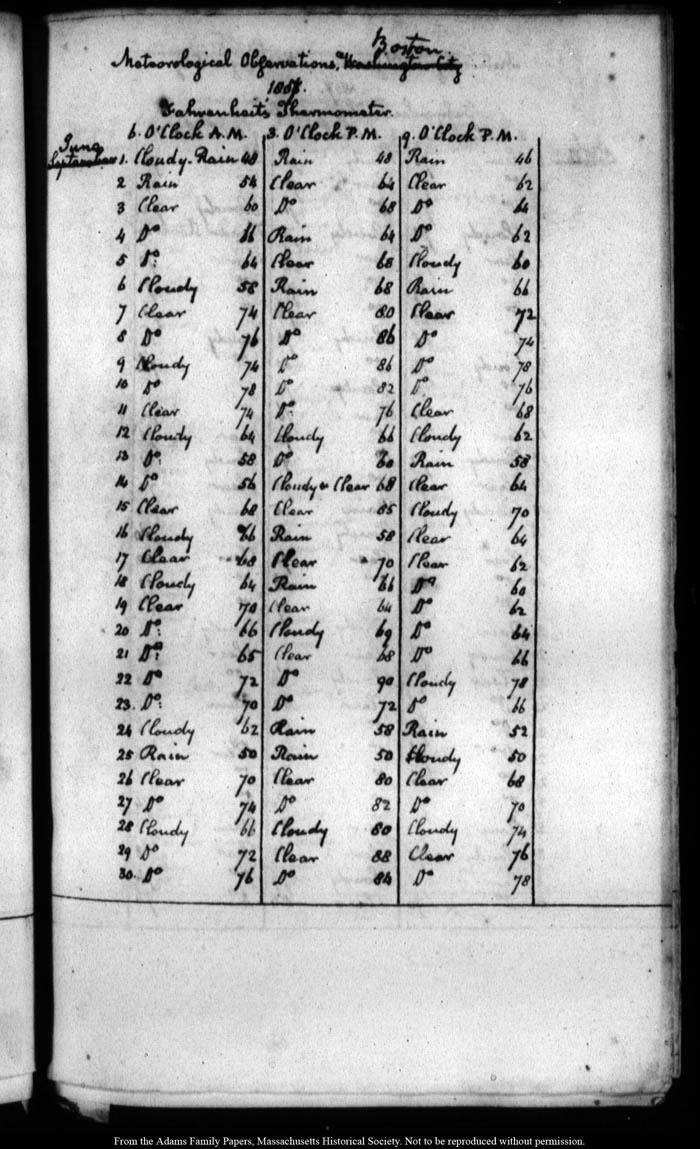 Boston.
Meteorological Observations, Washington City
Fahrenheit's Thermometer.
6. O'Clock A.M. 3. O'Clock P.M. 9. O'Clock P.M.
June
September 1. Cloudy. Rain 48 Rain 48 Rain 46
2 Rain 54 Clear 64 Clear 62
3 Clear 60 Do 68 Do 64
4 Do 66 Rain 64 Do 62
5 Do: 64 Clear 68 Cloudy 60
6 Cloudy 58 Rain 68 Rain 66
7 Clear 74 Clear 80 Clear 72
8 Do 76 Do 86 Do 74
9 Cloudy 74 Do 86 Do 78
10 Do 78 Do 82 Do 76
11 Clear 74 Do. 76 Clear 68
12 Cloudy 64 Cloudy 66 Cloudy 62
13 Do. 58 Do 60 Rain 58
14 Do 56 Cloudy & Clear 68 Clear 64
15 Clear 68 Clear 85 Cloudy 70
16 Cloudy 66 Rain 58 Clear 64
17 Clear 68 Clear 70 Clear 62
18 Cloudy 64 Rain 66 Do 60
19 Clear 70 Clear 64 Do 62
20 Do: 66 Cloudy 69 Do 64
21 Do: 65 Clear 68 Do 66
22 Do 72 Do 90 Cloudy 78
23. Do: 70 Do 72 Do 66
24 Cloudy 62 Rain 58 Rain 52
25 Rain 50 Rain 50 Cloudy 50
26 Clear 70 Clear 80 Clear 68
27 Do 74 Do 82 Do 70
28 Cloudy 66 Cloudy 80 Cloudy 74
29 Do 72 Clear 88 Clear 76
30. Do 76 Do 84 Do 78
From the Adams Family Papers, Massachusetts Historical Society. Not to be reproduced without permission.